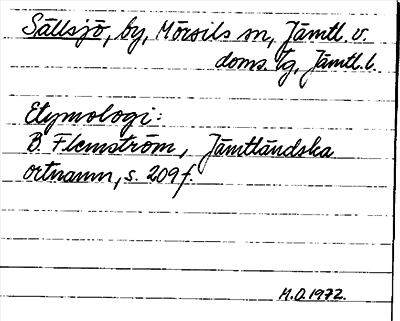 Sällsjö, by, Mörsils sn, Jämtl. v.
doms. tg, Jämtl. l.
Etymologi:
B. Flemström, Jämtländska
ortnamn, s. 209f.
M.O. 1972.